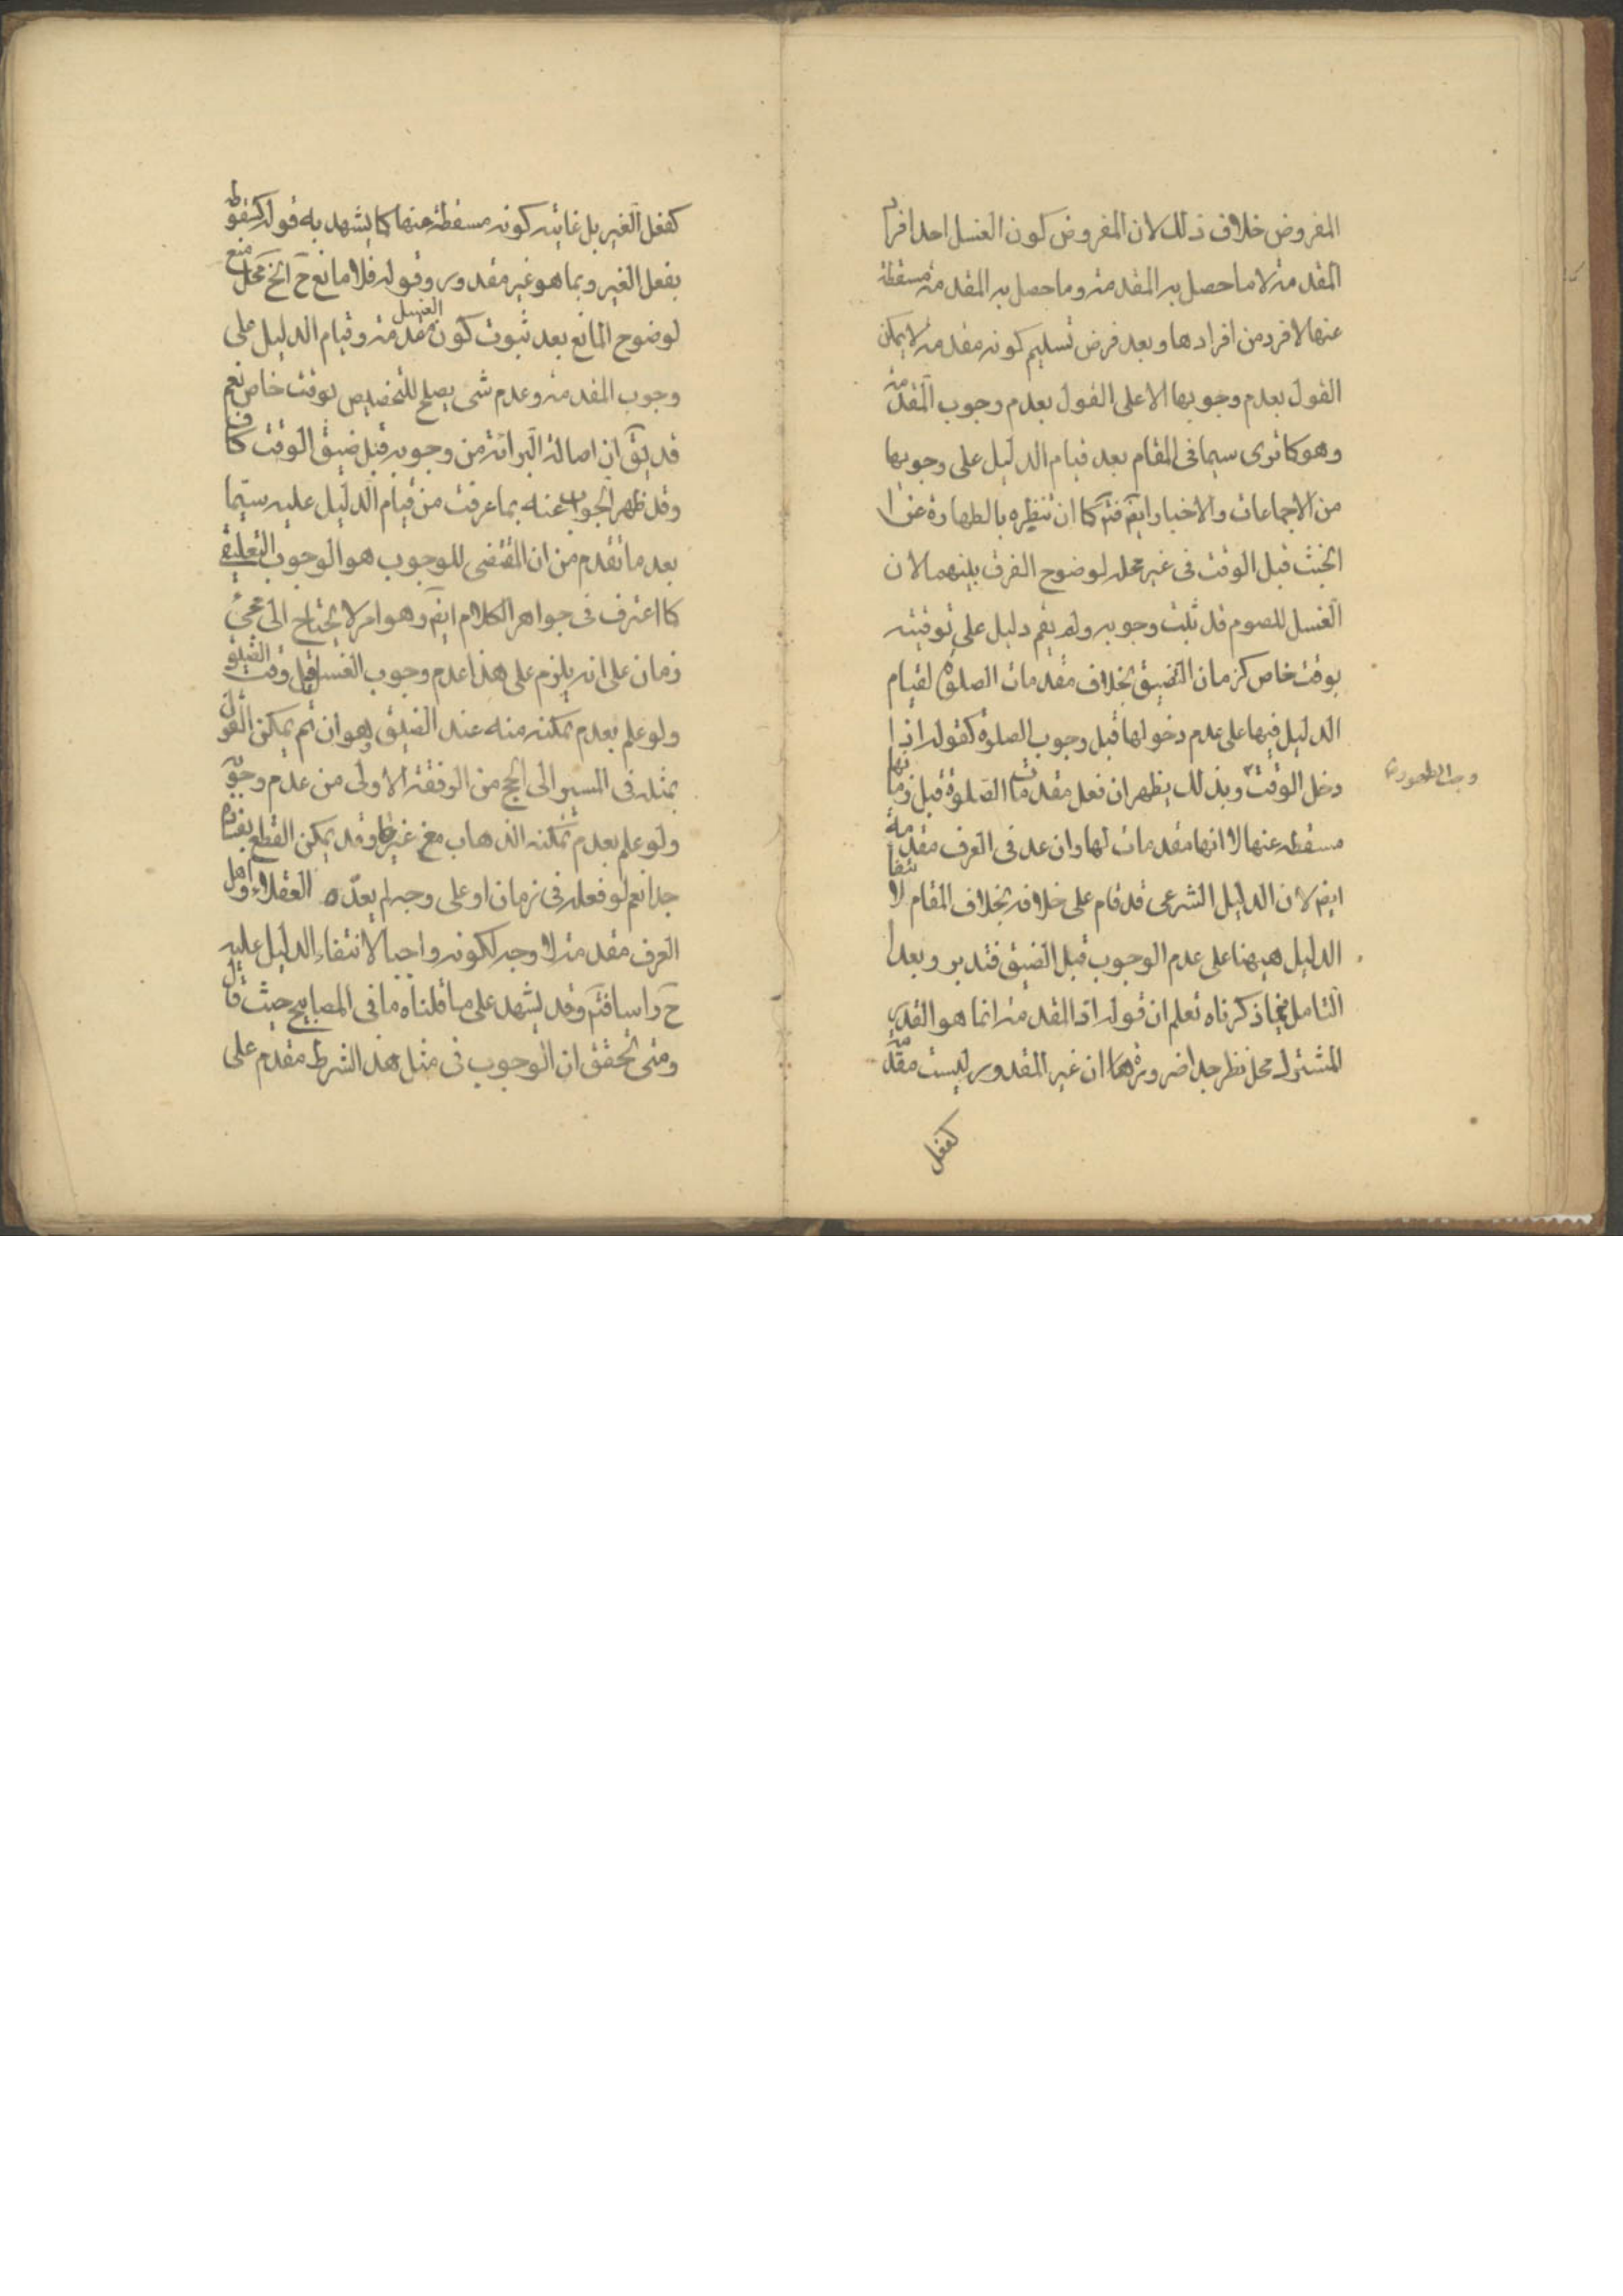 المفروض خلاف ذلك لان المفروض كون الغسل احد افراد
المقدمة لا ما حصل به المقدمة وما حصل به المقدمة مسقطة
عنها لا فرد من افرادها وبعد فرض تسليم كونه مقدمة لا يمكن
القول بعدم وجوبها الا على القول بعدم وجوب المقدمة
وهو كما ترى سيما فى المقام بعد قيام الدليل على وجوبها
من الاجماعات والاخبار ايضا فتم كما ان تنظيره بالطهارة عن
الخبث قبل الوقت فى غير محله لوضوح الفرق بينهما لان
الغسل للصوم قد ثبت وجوبه ولم يقم دليل على توقيته
بوقت خاص كزمان التضيق بخلاف مقدمات الصلوة لقيام
الدليل فيها على عدم دخولها قبل وجوب الصلوة كقوله اذا
دخل الوقت وبذلك يظهر ان فعل مقدمات الصلوة قبل زمانها
وجب الطهور
مسقطه عنها لا انها مقدمات لها وان عد فى العرف مقدمة
ايض لان الدليل الشرعى قد قام على خلافه بخلاف المقام لانتفاء
الدليل هيهنا على عدم الوجوب قبل الضيق فتدبر وبعد
التامل فيما ذكرناه تعلم ان قوله اذ المقدمة انما هو القدر
المشترك محل نظر جدا ضرورة ان غير المقدور ليست مقدمة
كفعل
كفعل الغير بل غايته كونه مسقطة عنها كما يشهد به قوله كسقوط
بفعل الغير وبما هو غير مقدور وقوله فلا مانع ح الخ محل منع
لوضوح المانع بعد ثبوت كون الغسل مقدمة وقيام الدليل على
وجوب المقدمة وعدم شى يصلح للتخصيص بوقت خاص نعم
قد يق ان اصالة البرائة من وجوبه قبل ضيق الوقت كاف
وقد ظهر الجواب عنه بما عرفت من قيام الدليل عليه سيما
بعد ما تقدم من ان المقتضى للوجوب هو الوجوب التعليقى
كما اعترف فى جواهر الكلام ايض وهو امر لا يحتاج الى مجئ
زمان على انه يلزم على هذا عدم وجوب الغسل قبل وقت الضيق
ولو علم بعدم تمكنه منه عند الضيق وهو ان تم يمكن القول
بمثله فى المسير الى الحج من الوفقة الاولى من عدم وجوبه
ولو علم بعدم تمكنه الذهاب مع غيرها وقد يمكن القطع بفساده
جدا نعم لو فعله فى زمان او على وجه لم يعده العقلاء واهل
العرف مقدمة لا وجه لكونه واجبا لانتفاء الدليل عليه
ح راسا فتم وقد يشهد على ما قلناه ما فى المصابيح حيث قال
ومتى تحقق ان الوجوب فى مثل هذا الشرط مقدم على